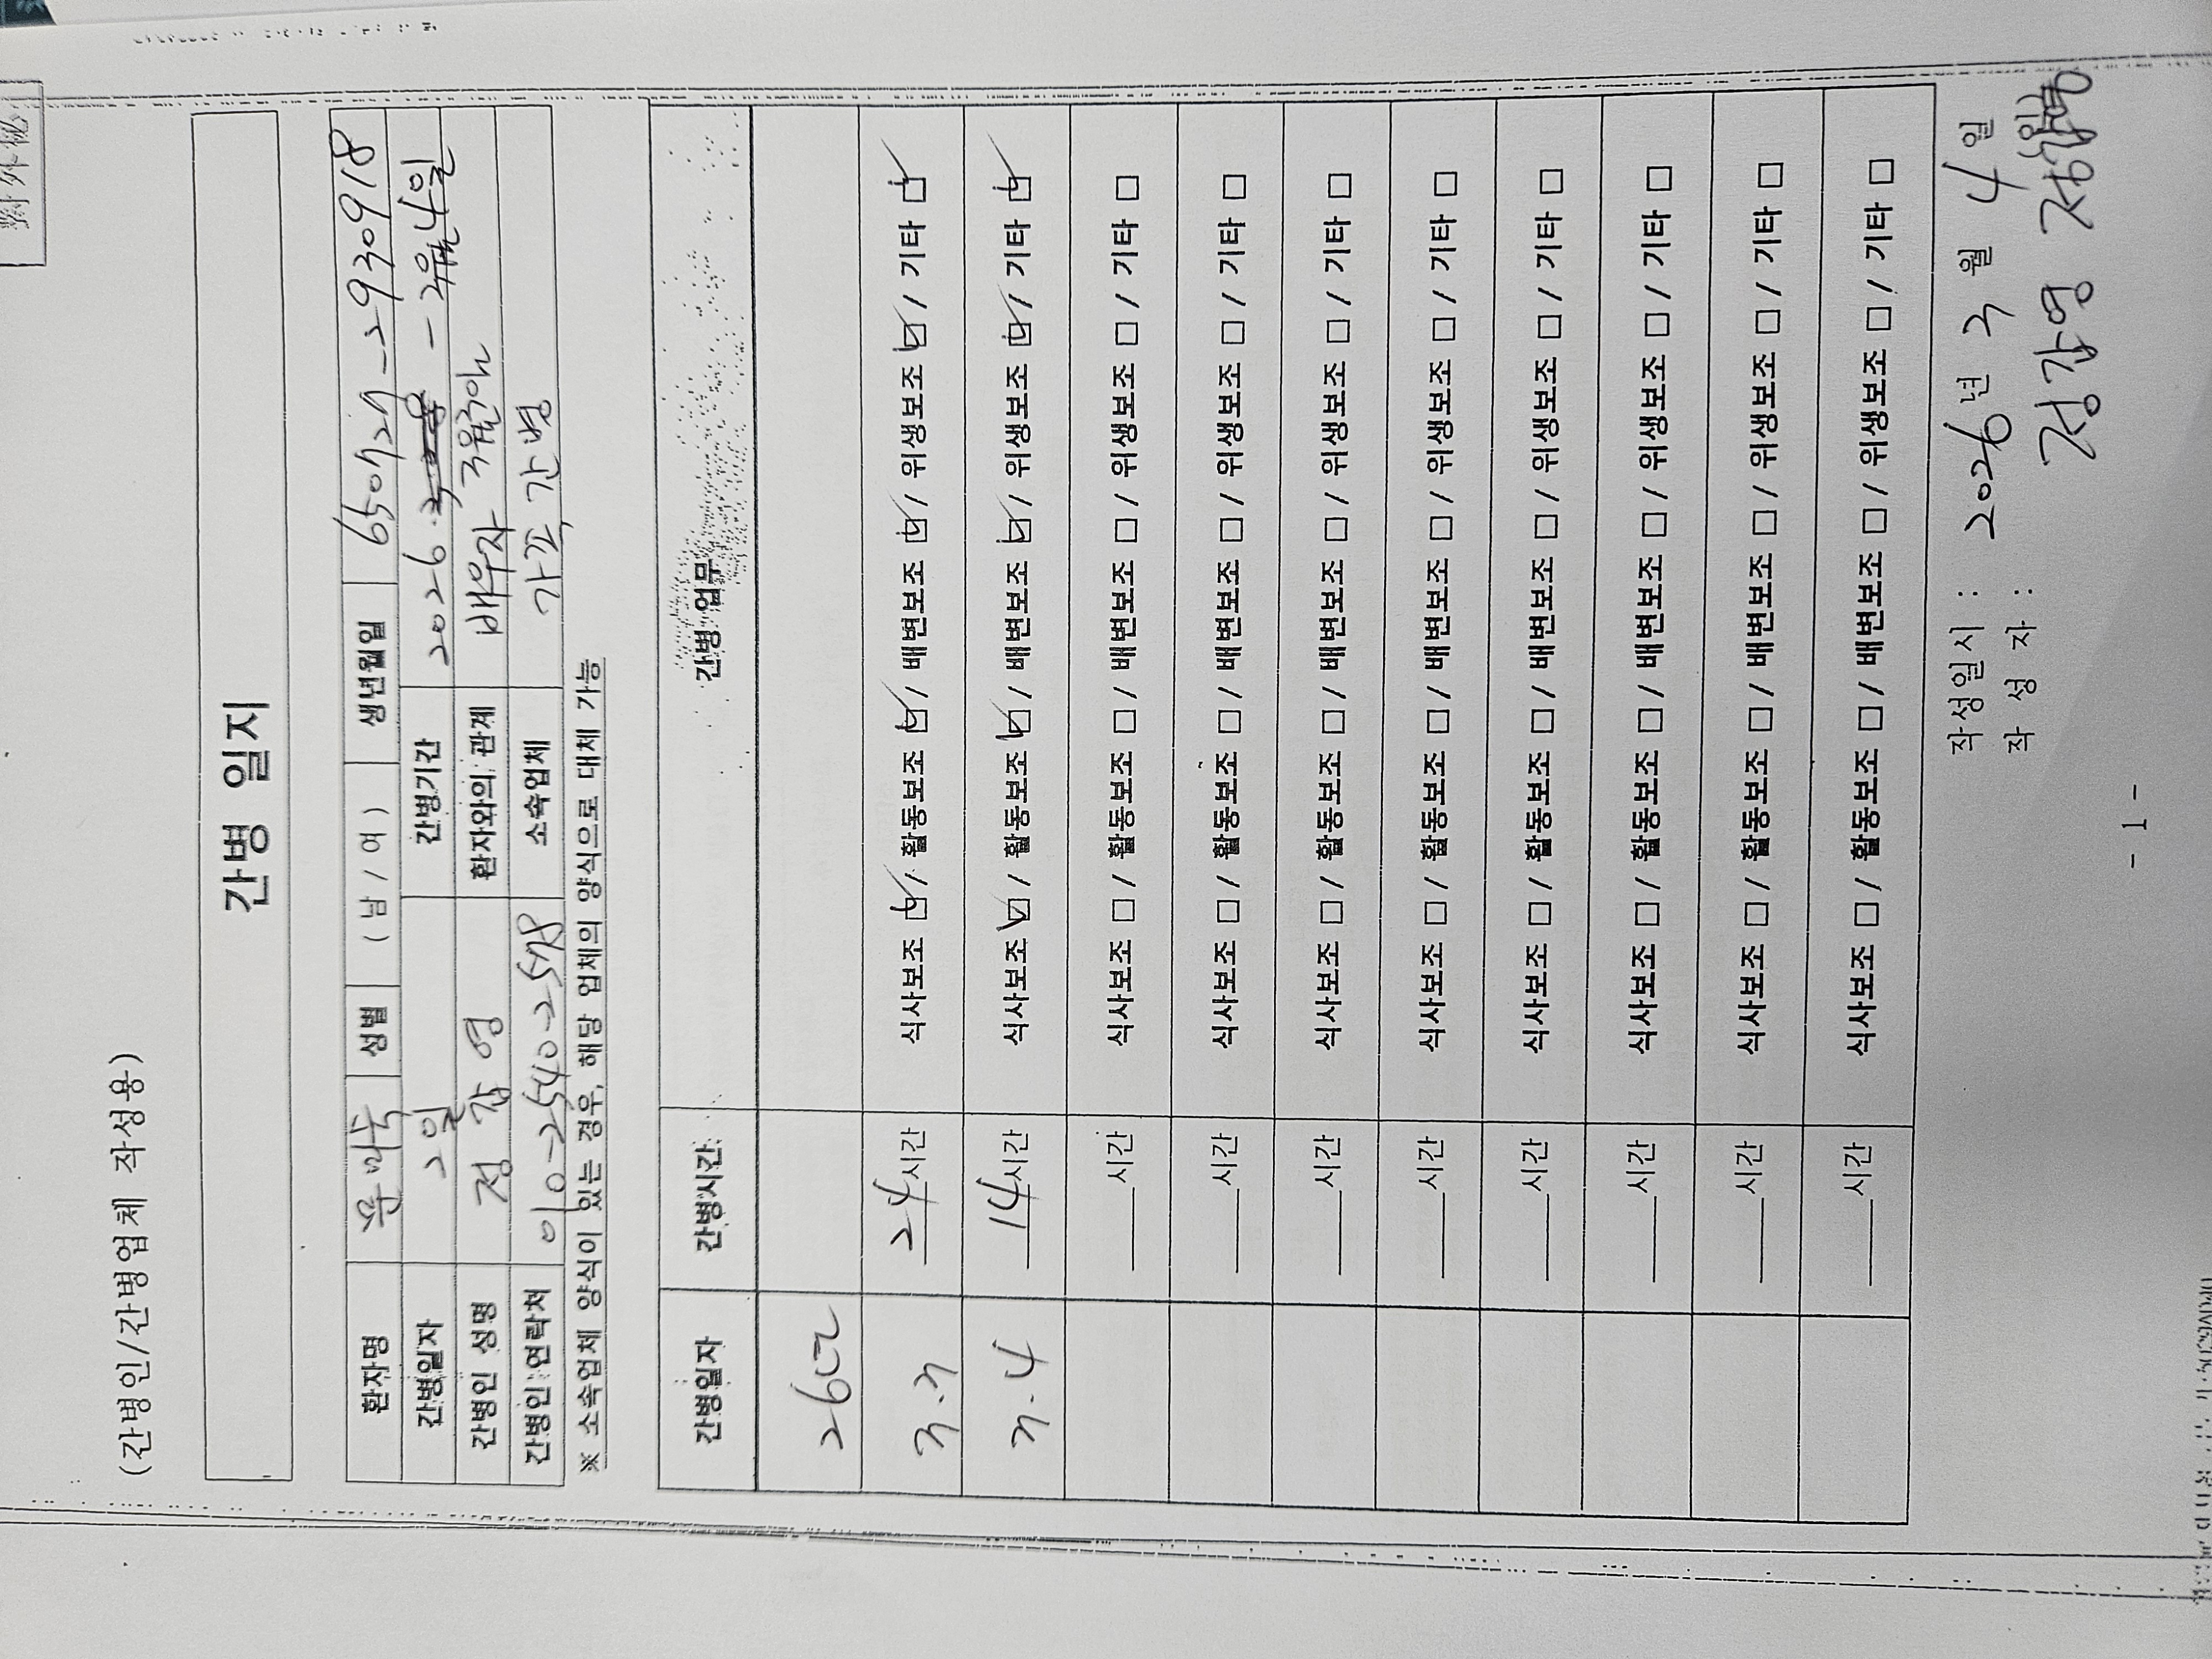 對外秘
(간병인/간병업체 작성용)
간병 일지
환자명 윤 성별 (남/여) 생년월일 650727-2930918
간병일자 2일 간병기간 2026. - 3월 4일
간병인 성명 정갑영 환자와의 관계 배우자
간병인 연락처 010-2540-2578 소속업체 가족 간병
※ 소속업체 양식이 있는 경우, 해당 업체의 양식으로 대체 가능
간병일자 간병시간 간병 업무
26년
3.3 24시간 식사보조 ☑ / 활동보조 ☑ / 배변보조 ☑ / 위생보조 ☑ / 기타 ☑
3.4 14시간 식사보조 ☑ / 활동보조 ☑ / 배변보조 ☑ / 위생보조 ☑ / 기타 ☑
____시간 식사보조 □ / 활동보조 □ / 배변보조 □ / 위생보조 □ / 기타 □
____시간 식사보조 □ / 활동보조 □ / 배변보조 □ / 위생보조 □ / 기타 □
____시간 식사보조 □ / 활동보조 □ / 배변보조 □ / 위생보조 □ / 기타 □
____시간 식사보조 □ / 활동보조 □ / 배변보조 □ / 위생보조 □ / 기타 □
____시간 식사보조 □ / 활동보조 □ / 배변보조 □ / 위생보조 □ / 기타 □
____시간 식사보조 □ / 활동보조 □ / 배변보조 □ / 위생보조 □ / 기타 □
____시간 식사보조 □ / 활동보조 □ / 배변보조 □ / 위생보조 □ / 기타 □
____시간 식사보조 □ / 활동보조 □ / 배변보조 □ / 위생보조 □ / 기타 □
작성일시 : 2026년 3월 4일
작 성 자 : 정갑영 (인)
- 1 -